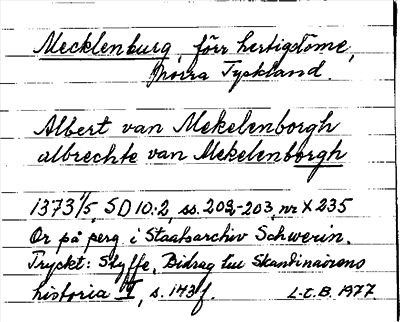 Mecklenburg, förr hertigdöme,
Norra Tyskland.
Albert van Mekelenborgh
albrechte van Mekelenborgh
1373 1/5, SD 10:2, ss. 202-203, nr X 235
Or på perg i Staatsarchiv Schwerin.
Tryckt: Styffe, Bidrag till Skandinaviens
historia I, s. 143 f. L-E.B. 1977